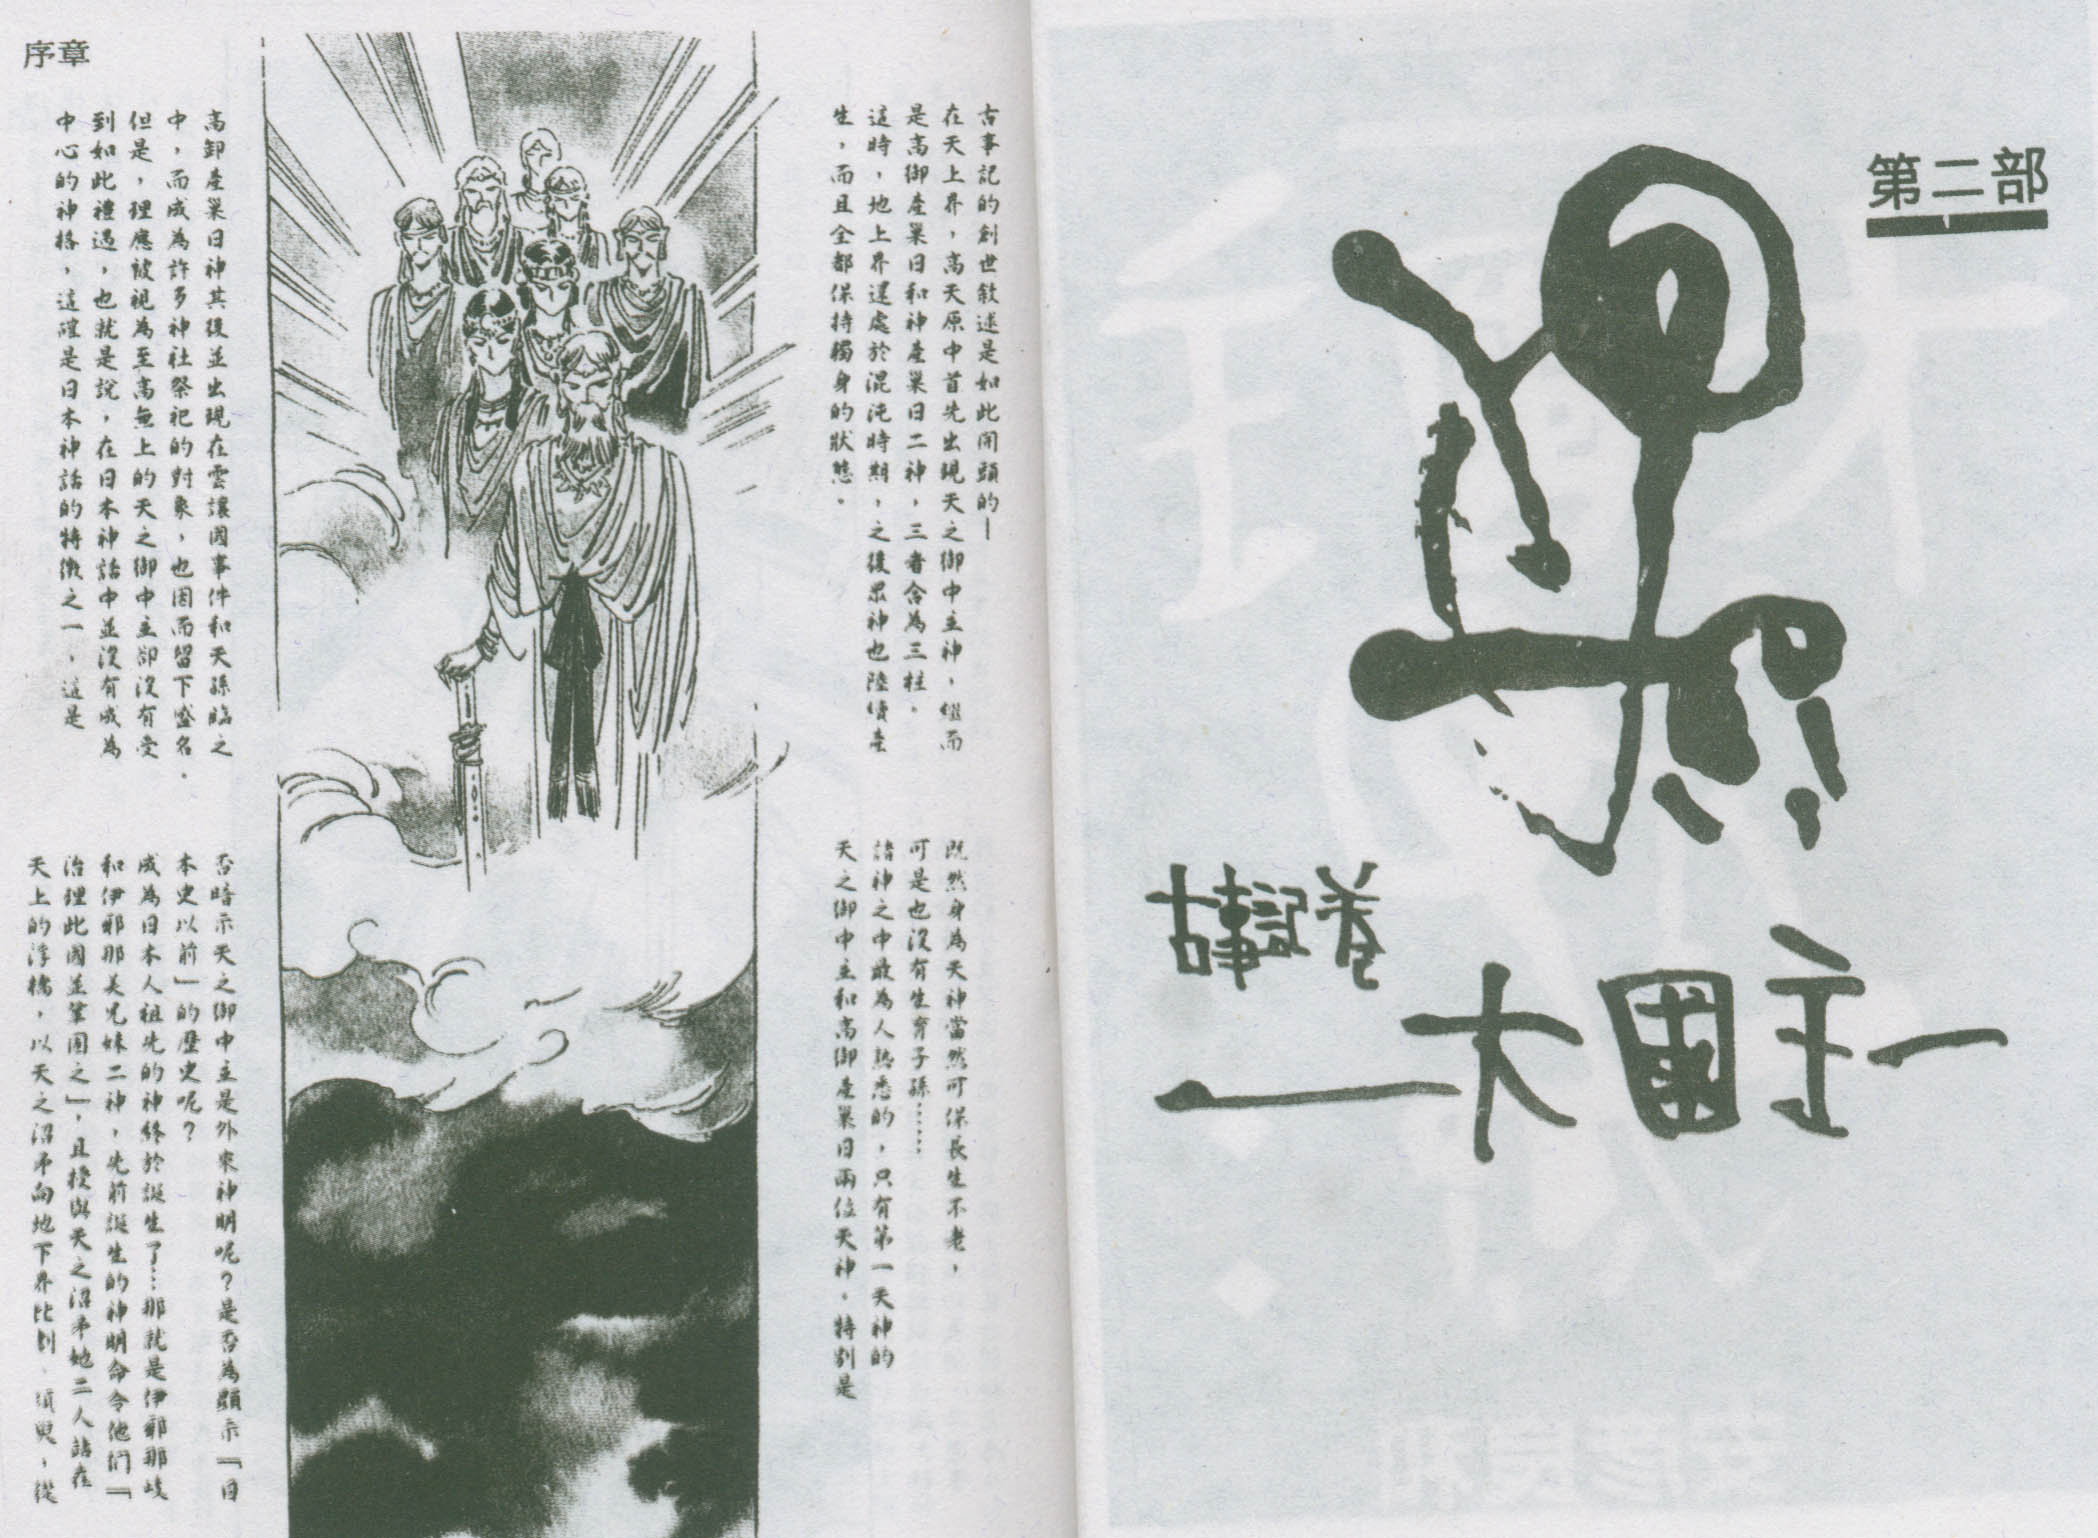 第二部
古事記卷
大國主
序章
古事記的創世敘述是如此開頭的—
在天上界，高天原中首先出現天之御中主神，繼而
是高御產巢日和神產巢日二神，三者合為三柱。
這時，地上界還處於混沌時期，之後眾神也陸續產
生，而且全都保持獨身的狀態。
既然身為天神當然可保長生不老，
可是也沒有生育子孫……
諸神之中最為人熟悉的，只有第一天神的
天之御中主和高御產巢日兩位天神。特別是
高卸產巢日神其後並出現在雲讓國事件和天孫臨之
中，而成為許多神社祭祀的對象，也因而留下盛名。
但是，理應被視為至高無上的天之御中主卻沒有受
到如此禮遇，也就是說，在日本神話中並沒有成為
中心的神格，這確是日本神話的特徵之一，這是
否暗示天之御中主是外來神明呢？是否為顯示『日
本史以前』的歷史呢？
成為日本人祖先的神終於誕生了…那就是伊邪那岐
和伊邪那美兄妹二神，先前誕生的神明命令他們『
治理此國並鞏固之』，且授與天之沼矛她二人站在
天上的浮橋，以天之沼矛向地下界比劃，須臾，從